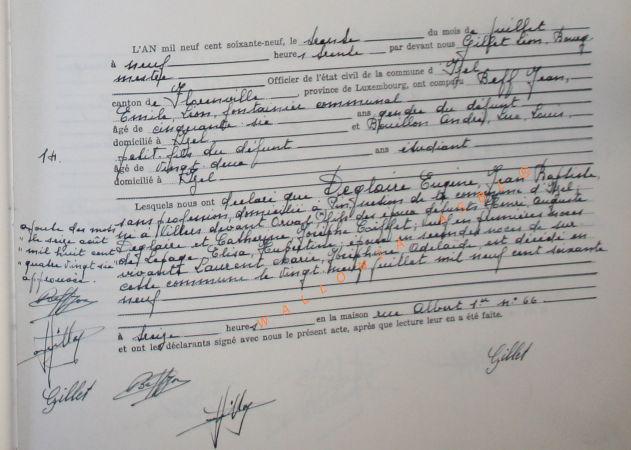 L'AN mil neuf cent soixante-neuf, le trente du mois de juillet
à neuf heures trente par devant nous Gillet Léon, Bourg-
mestre Officier de l'état civil de la commune d' Izel
canton de Florenville, province de Luxembourg, ont comparu Jean,
Emile, Léon, fontainier communal
âgé de cinquante six ans gendre du défunt
domicilié à Izel, et Bouillon André, Luc, Louis,
petit-fils du défunt
âgé de vingt deux ans étudiant
domicilié à Izel
14.
Lesquels nous ont déclaré que Deglaire Eugène, Jean Baptiste,
sans profession, domicilié à l'instruction de la commune d'Izel,
né à Villers devant Orval, fils des époux défunts Henri, Auguste
Deglaire et Catherine, Josèphe veuf en premières noces
de Lepage Elisa, époux en secondes noces de sur-
vivante Laurent, Marie, Josèphe, Adelaïde est décédé en
cette commune le vingt neuf juillet mil neuf cent soixante
neuf
ajoute des mots
"le seize août
mil huit cent
quatre vingt six"
approuvés.
à seize heures en la maison rue Albert 1er n° 66
et ont les déclarants signé avec nous le présent acte, après que lecture leur en a été faite.
Gillet
Gillet
WALLONIA